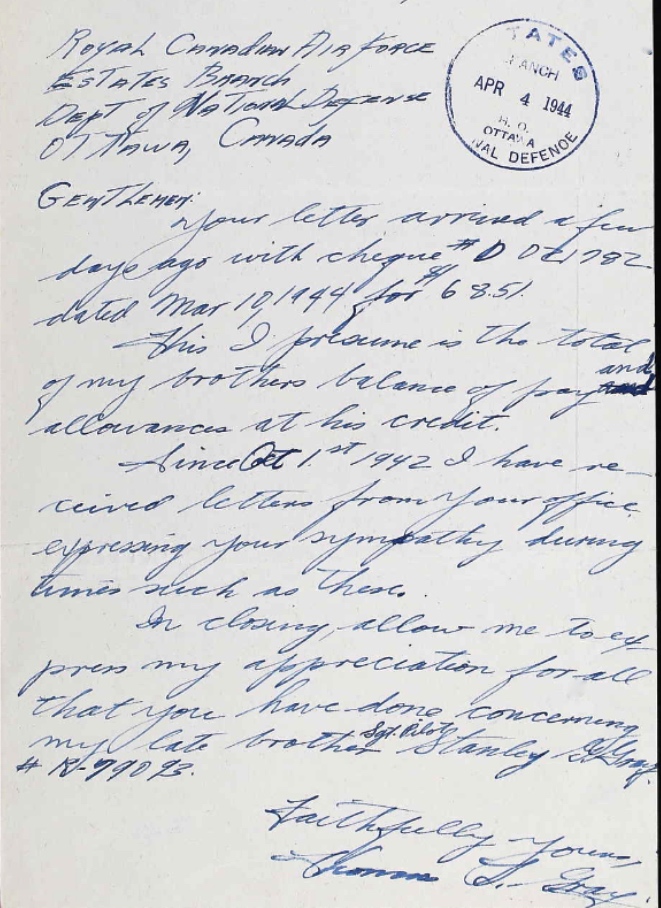 Royal Canadian Air Force
Estates Branch
Dept of National Defense
Ottawa, Canada
TATES
RANCH
APR 4 1944
H. Q.
OTTAWA
NAL DEFENCE
Gentlemen:
Your letter arrived a few
days ago with cheque # D
dated Mar 10, 1944 for $ 68.51.
This I presume is the total
of my brothers balance of pay and
allowances at his credit.
Since Oct 1.st 1942 I have re-
ceived letters from your office
expressing your sympathy during
times such as these.
In closing, allow me to ex-
press my appreciation for all
that you have done concerning
my late brother Sgt. Pilot Stanley Gray.
# R-79093.
Faithfully yours,
Thomas L. Gray.